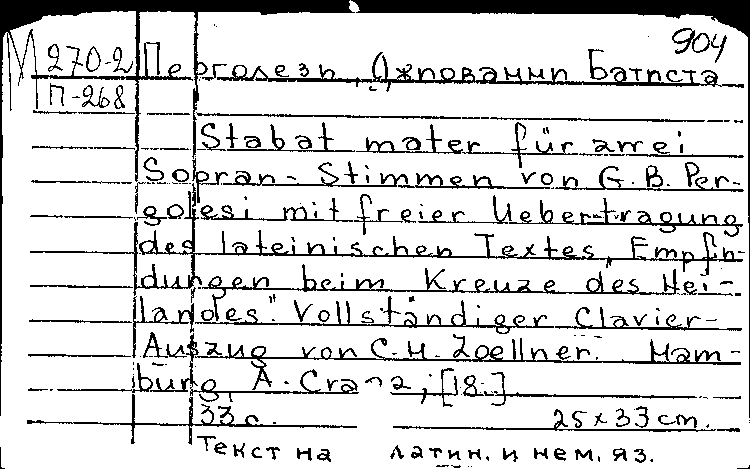 904
М 270-2 Перголези, Джованни Батиста
П-268
Stabat mater für zwei
Sopran-Stimmen von G.B. Per-
golesi mit freier Uebertragung
des lateinischen Textes, Empfin-
dungen beim Kreuze des Hei-
landes". Vollständiger Clavier-
Auszug von C.H. Zoellner. Ham-
burg, A. Cranz, [18..]
33 с. 25x33 cm.
Текст на латин. и нем. яз.